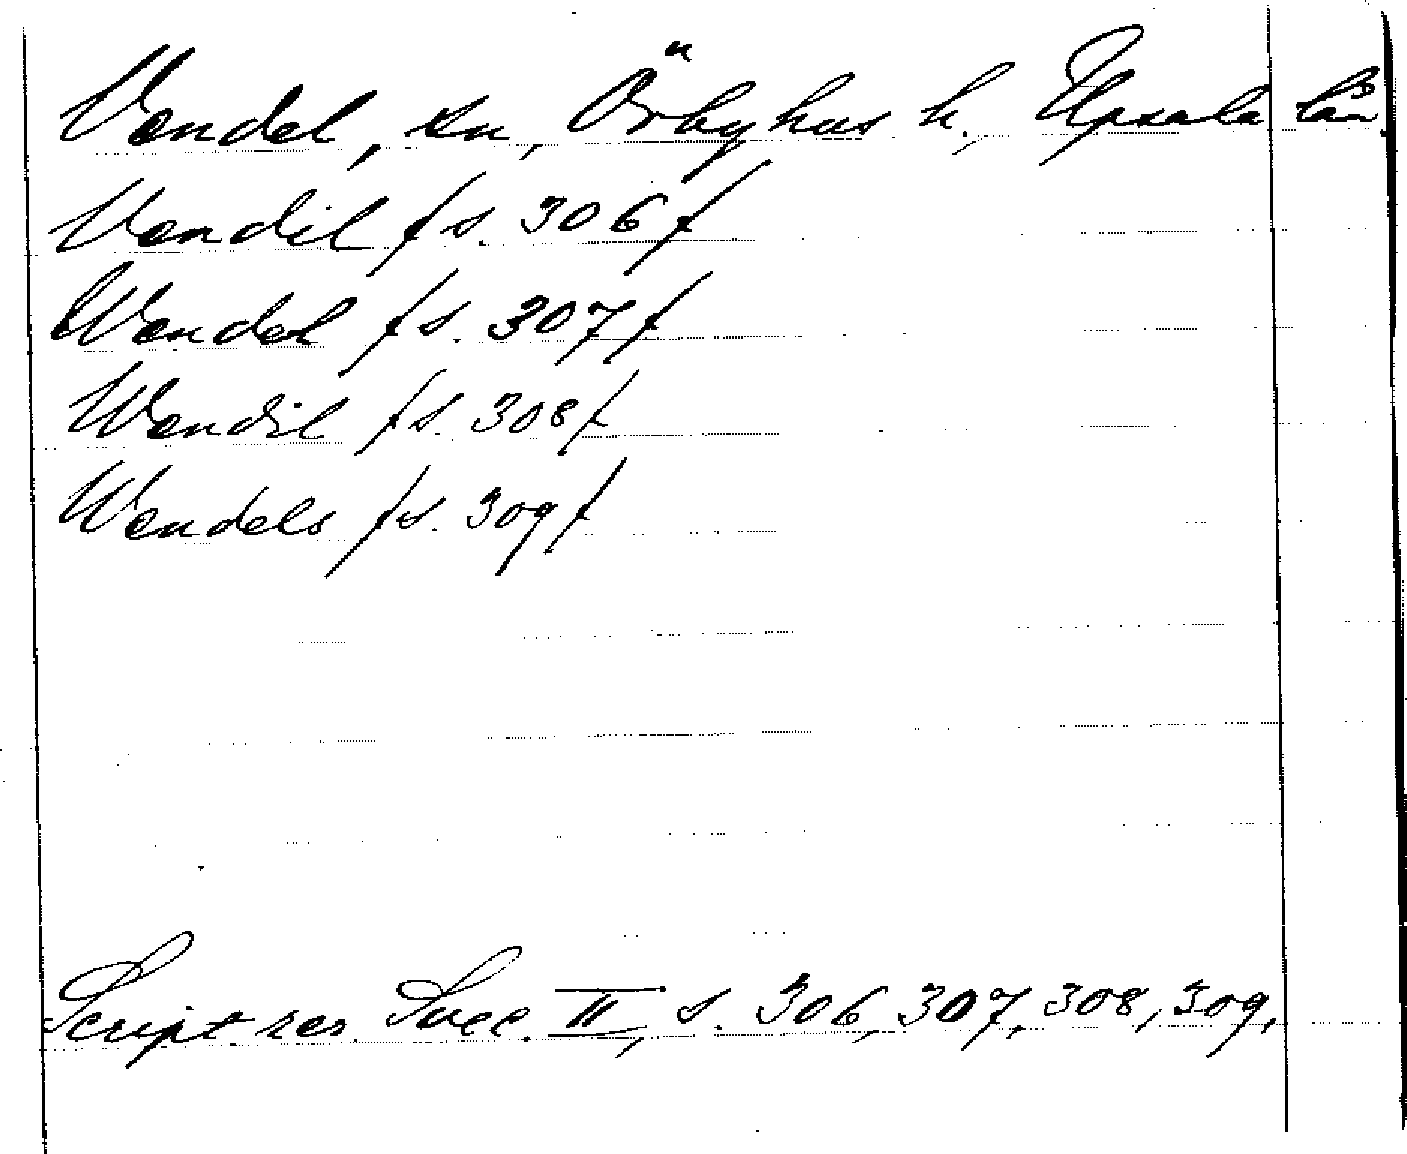 Vendel, sn, Örbyhus h., Upsala län
Vendil /s. 306/
Wendel /s. 307/
Wendil /s. 308/
Wendels /s. 309/
Script. rer. Svec. II, s. 306, 307, 308, 309.